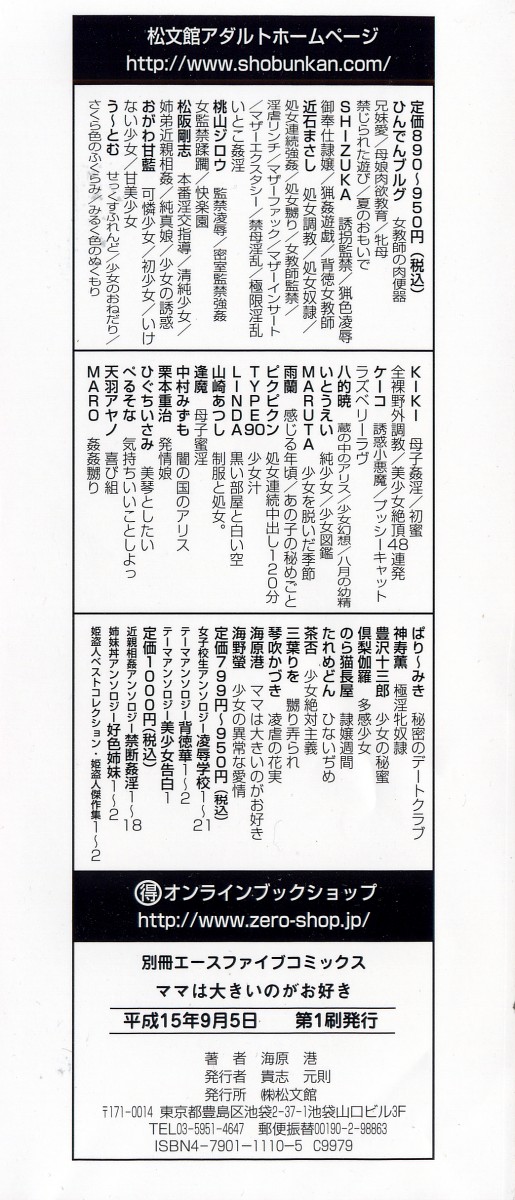 松文館アダルトホームページ
http://www.shobunkan.com/
定価890～950円(税込)
ひんでんブルグ　女教師の肉便器
兄妹愛／母娘肉欲教育／牝母
禁じられた遊び／夏のおもいで
SHIZUKA　誘拐監禁／猟色凌辱
御奉仕隷嬢／猟姦遊戯／背徳女教師
近石まさし　処女調教／処女奴隷／
処女連続強姦／処女嬲り／女教師監禁／
淫虐リンチ／マザーファック／マザーインサート
／マザーエクスタシー／禁母淫乱／極限淫乱
いとこ姦淫
桃山ジロウ　監禁凌辱／密室監禁強姦
女監禁蹂躙／快楽園
松阪剛志　本番淫交指導／清純少女／
姉弟近親相姦／純真娘／少女の誘惑
おがわ甘藍　可憐少女／初少女／いけ
ない少女／甘美少女
う～とむ　せっくすふれんど／少女のおねだり／
さくら色のふくらみ／みるく色のぬくもり
KIKI　母子姦淫／初蜜
全裸野外調教／美少女絶頂48連発
ケーコ　誘惑小悪魔／プッシーキャット
ラズベリーラヴ
八的暁　蔵の中のアリス／少女幻想／八月の幼精
いとうえい　純少女／少女図鑑
MARUTA　少女を脱いだ季節
雨蘭　感じる年頃／あの子の秘めごと
ピクピクン　処女連続中出し120分
TYPE90　少女汁
LINDA　黒い部屋と白い空
山崎あつし　制服と処女。
逢魔　母子蜜淫
中村みずも　闇の国のアリス
栗本重治　発情娘
ひぐちいさみ　美琴としたい
べるそな　気持ちいいことしよっ
天羽アヤノ　喜び組
MARO　姦姦嬲り
ぱり～みき　秘密のデートクラブ
神寿薫　極淫牝奴隷
豊沢十三郎　少女の秘蜜
倶梨伽羅　多感少女
のら猫長屋　隷嬢週間
たれめどん　ひないぢめ
茶否　少女絶対主義
三葉りを　嬲り弄られ
琴吹かづき　凌虐の花実
海原港　ママは大きいのがお好き
海野螢　少女の異常な愛情
定価799円～950円(税込)
女子校生アンソロジー凌辱学校1～21
テーマアンソロジー背徳華1～2
テーマアンソロジー美少女告白1
定価1000円(税込)
近親相姦アンソロジー禁断姦淫1～18
姉妹丼アンソロジー好色姉妹1～2
姫盗人ベストコレクション・姫盗人傑作集1～2
得オンラインブックショップ
http://www.zero-shop.jp/
別冊エースファイブコミックス
ママは大きいのがお好き
平成15年9月5日　第1刷発行
著者　海原　港
発行者　貴志　元則
発行所　㈱松文館
〒171-0014　東京都豊島区池袋2-37-1池袋山口ビル3F
TEL03-5951-4647　郵便振替00190-2-98863
ISBN4-7901-1110-5　C9979